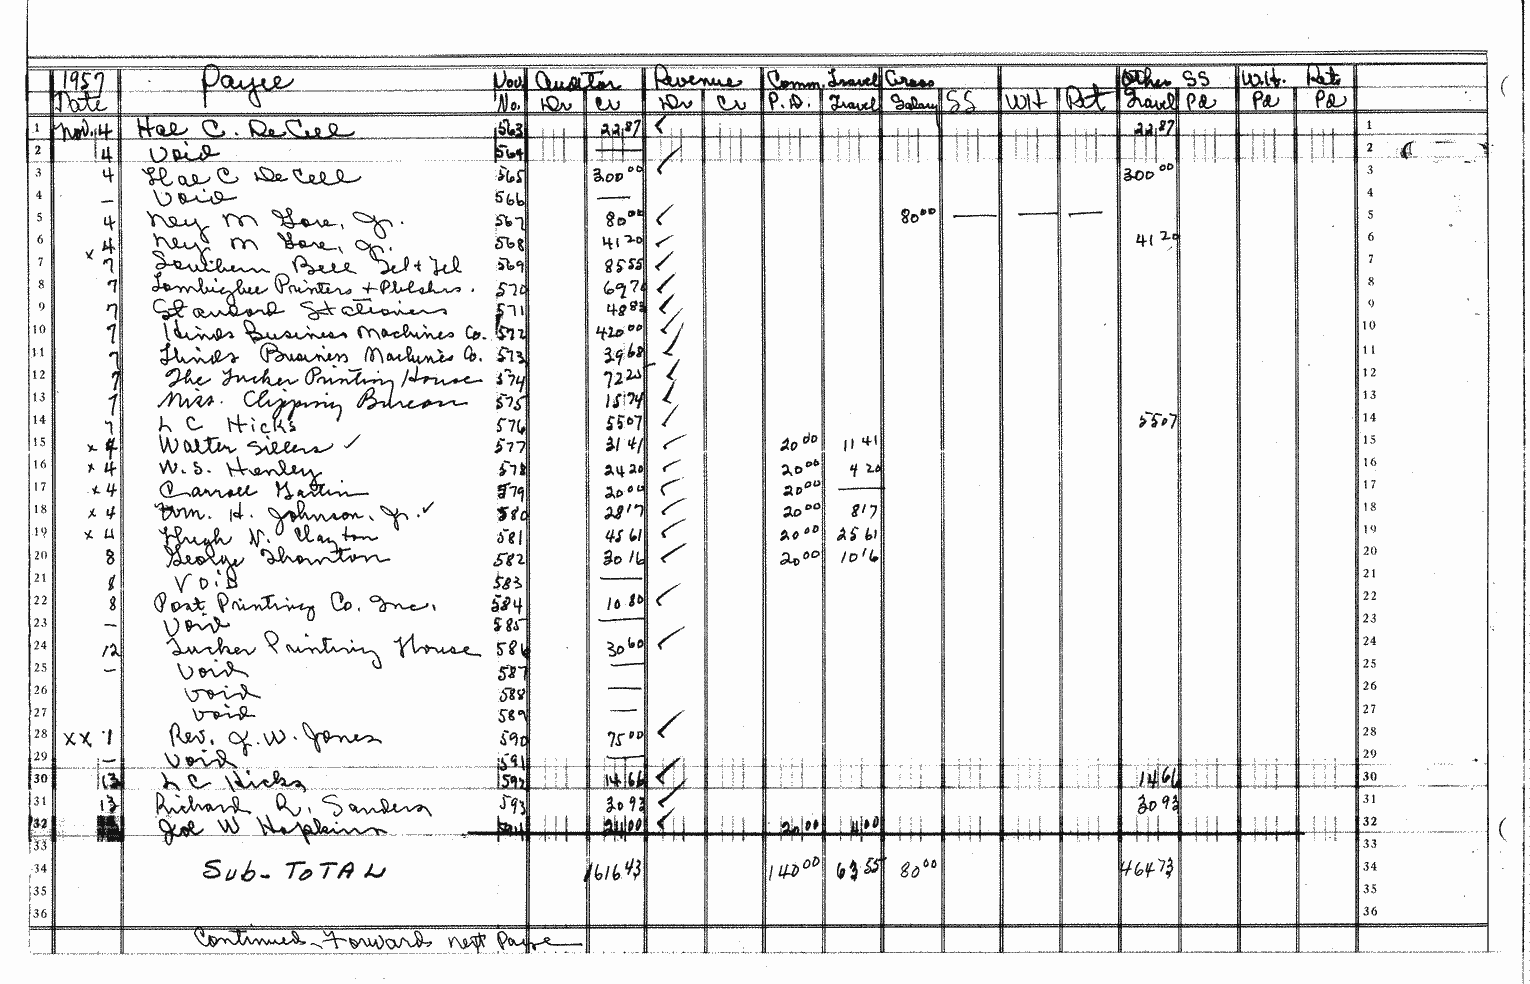 1957 Payee Vou. Auditor Revenue Comm. Travel Gross Other SS W.H. Rets
Date No. Dr Cr Dr Cr P.D. Travel Salary SS WH Ret Travel Pd Pd Pd
1 Nov. 4 Hal C. DeCell 563 22 87 ✓ 22 87 1
2 4 Void 564 — 2
3 4 Hal C DeCell 565 300 00 ✓ 300 00 3
4 — Void 566 — 4
5 4 Ney M Gore, Jr. 567 80 00 ✓ 80 00 — — — 5
6 4 Ney M Gore, Jr. 568 41 20 ✓ 41 20 6
7 x 7 Southern Bell Tel + Tel 569 85 55 ✓ 7
8 7 Tombigbee Printers + Pblshrs. 570 69 70 ✓ 8
9 7 Standard Stationers 571 48 83 ✓ 9
10 7 Hinds Business Machines Co. 572 420 00 ✓ 10
11 7 Hinds Business Machines Co. 573 39 68 ✓ 11
12 7 The Tucker Printing House 574 72 25 ✓ 12
13 7 Miss. Clipping Bureau 575 15 74 ✓ 13
14 7 L C Hicks 576 55 07 ✓ 55 07 14
15 x 4 Walter Sillers ✓ 577 31 41 ✓ 20 00 11 41 15
16 x 4 W. S. Henley 578 24 20 ✓ 20 00 4 20 16
17 x 4 Carroll Gartin 579 20 00 ✓ 20 00 — 17
18 x 4 Wm. H. Johnson, Jr. ✓ 580 28 17 ✓ 20 00 8 17 18
19 x 4 Hugh N. Clayton 581 45 61 ✓ 20 00 25 61 19
20 8 George Thornton 582 30 16 ✓ 20 00 10 16 20
21 8 Void 583 — 21
22 8 Post Printing Co. Inc. 584 10 80 ✓ 22
23 — Void 585 — 23
24 12 Tucker Printing House 586 30 60 ✓ 24
25 — Void 587 — 25
26 Void 588 — 26
27 Void 589 — 27
28 x x 1 Rev. J. W. Jones 590 75 00 ✓ 28
29 — Void 591 — 29
30 13 L C Hicks 592 14 66 ✓ 14 66 30
31 13 Richard R. Sanders 593 30 93 ✓ 30 93 31
32 Joe W Hopkins 594 24 00 ✓ 20 00 4 00 32
33 33
34 Sub-TOTAL 1616.43 140 00 63 55 80 00 464 73 34
35 35
36 36
Continued Forwards next Page